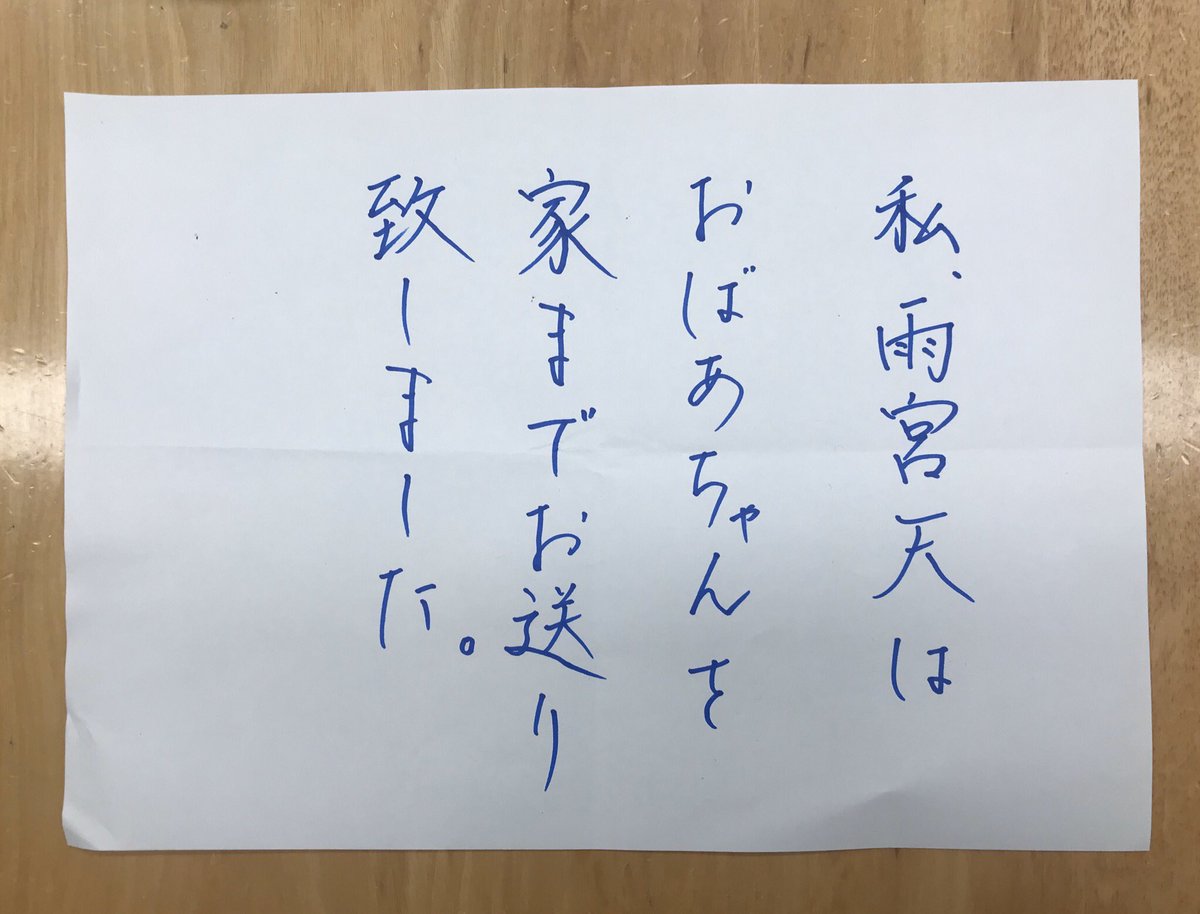 私、雨宮天は
おばあちゃんを
家までお送り
致しました。